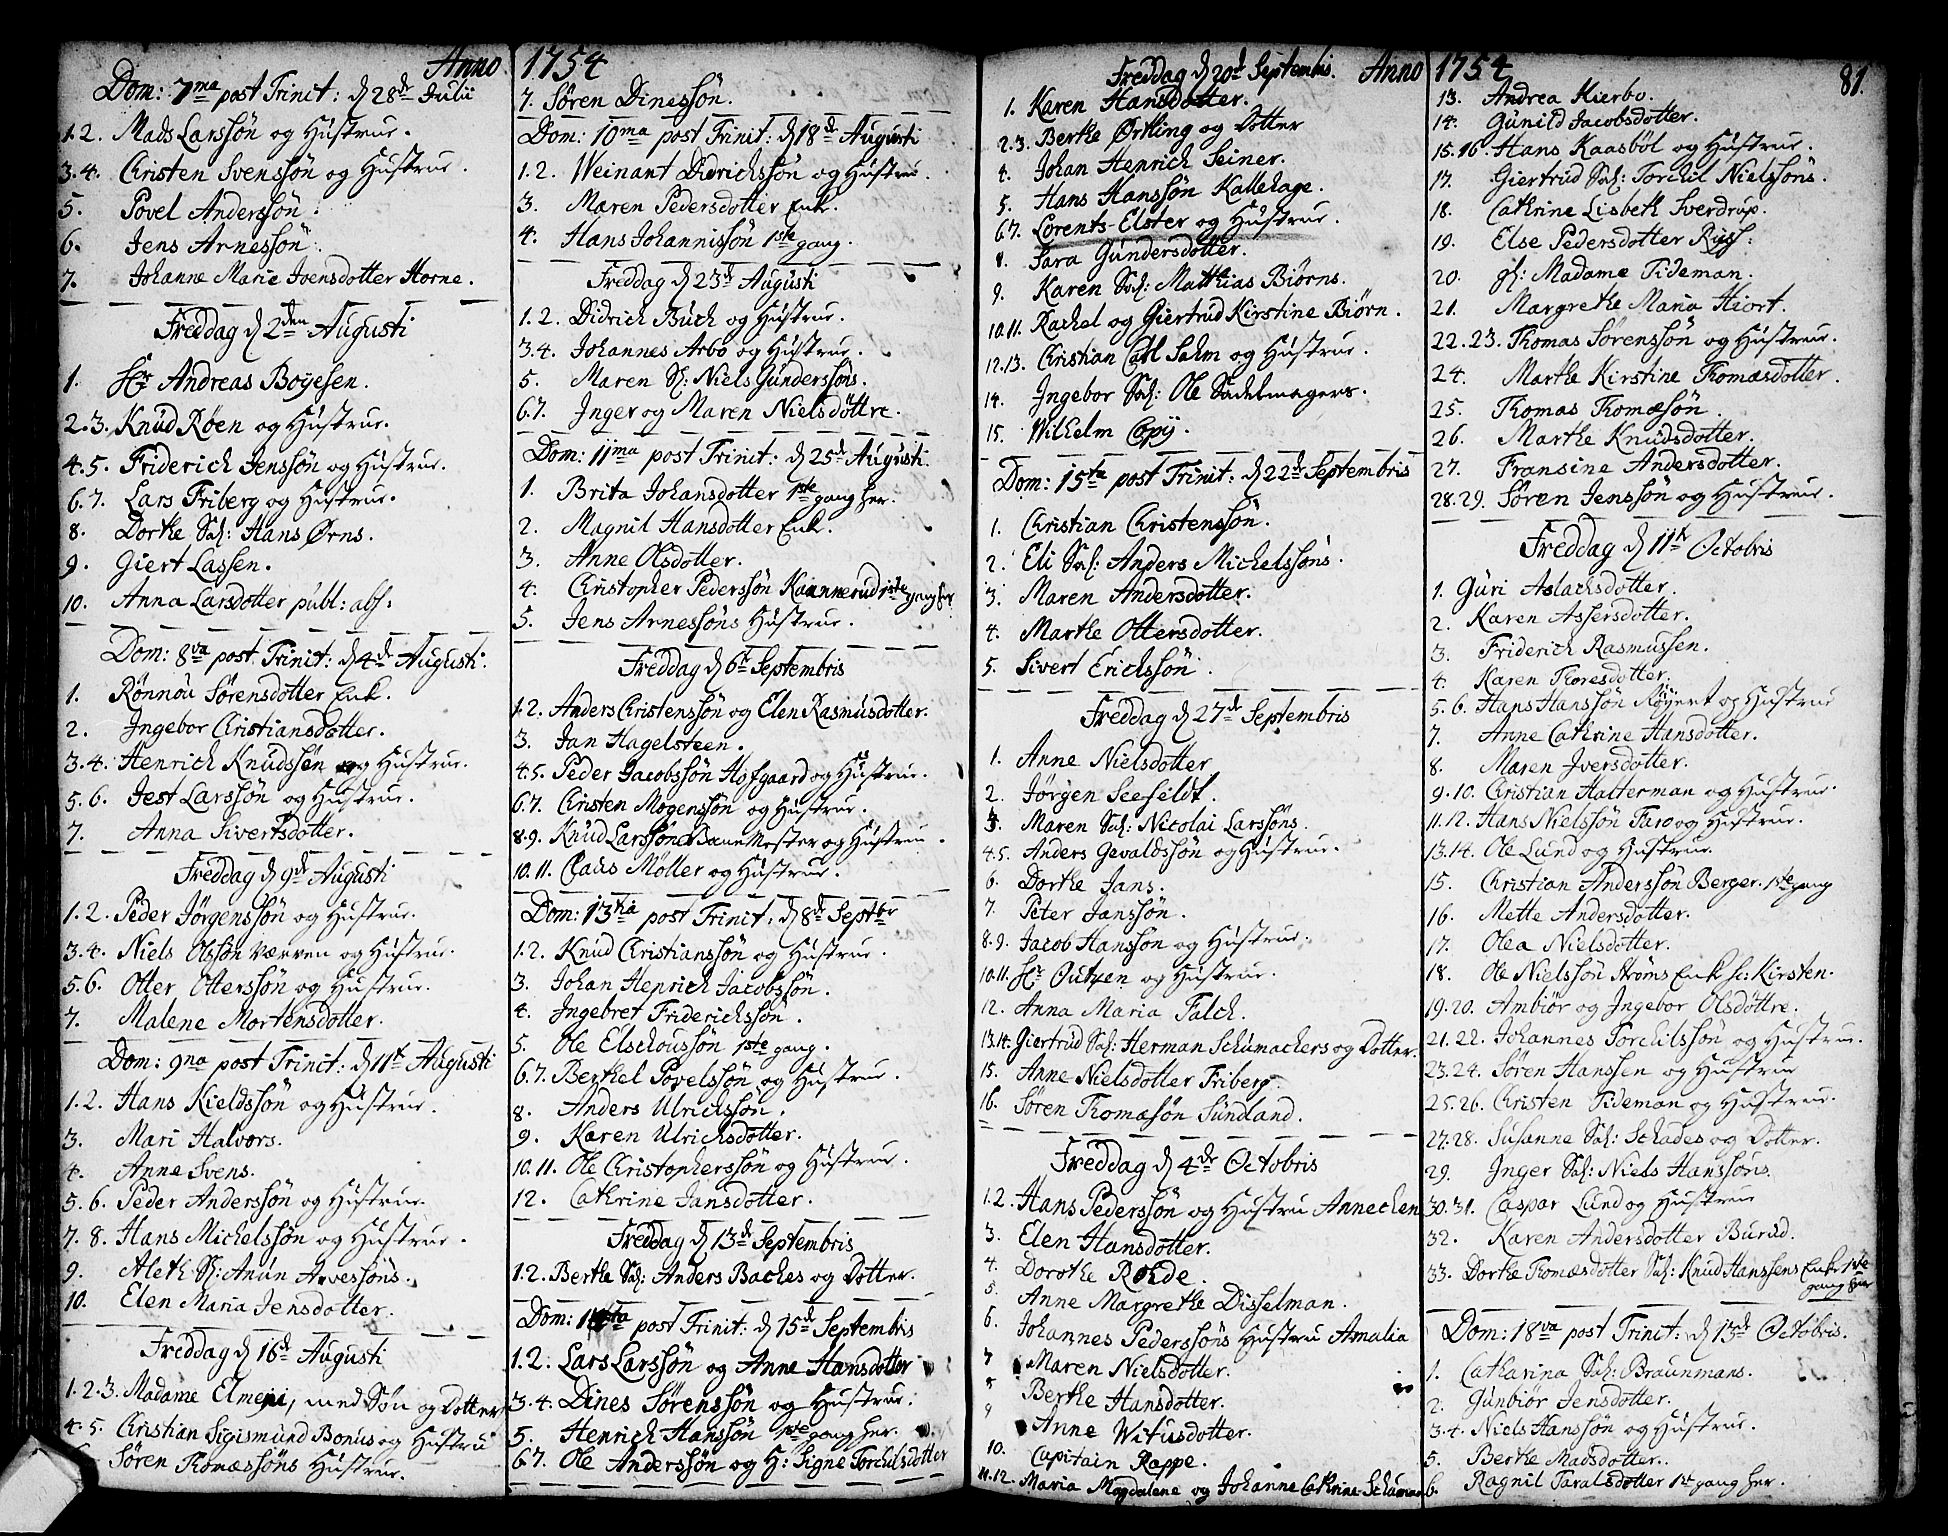 Anno 1754
Dom: 7ma post Trinit: d 28de Julii
1.2. Mads Larssøn og Hustrue.
3.4. Christen Svenssøn og Hustrue.
5. Povel Anderssøn.
6. Jens Arnessøn.
7. Johanne Marie Ivensdotter Horne.
Freddag d 2den Augusti
1. Hr Andreas Boyesen.
2.3. Knud Røen og Hustrue.
4.5. Friderich Jenssøn og Hustrue.
6.7. Lars Friberg og Hustrue.
8. Dorthe Sal: Hans Ørns.
9. Giert Lassen.
10. Anna Larsdotter publ: abs:
Dom: 8va post Trinit: d 4de Augusti.
1. Rønnou Sørensdotter Enk.
2. Ingebor Christiansdotter.
3.4. Henrich Knudssøn og Hustrue.
5.6. Jest Larssøn og Hustrue.
7. Anna Sivertsdotter.
Freddag d 9de Augusti
1.2. Peder Jørgenssøn og Hustrue.
3.4. Niels Olssøn Værven og Hustrue.
5.6. Otter Otterssøn og Hustrue.
7. Malene Mortensdotter.
Dom: 9na post Trinit: d 11te Augusti
1.2. Hans Kieldssøn og Hustrue.
3. Mari Halvors.
4. Anne Svens.
5.6. Peder Anderssøn og Hustrue.
7.8. Hans Michelssøn og Hustrue.
9. Aleth Sl: Anun Arvessøns.
10. Elen Maria Jensdotter.
Freddag d 16de Augusti
1.2.3. Madame Elmejn, med Søn og Dotter
4.5. Christian Sigismund Bonus og Hustru
Søren Thomæssøns Hustrue.
7. Søren Dinessøn.
Dom: 10ma post Trinit: d 18de Augusti
1.2. Weinant Didrichssøn og Hustrue.
3. Maren Pedersdotter Enk.
4. Hans Johannissøn 1ste gang.
Freddag d 23de Augusti
1.2. Didrich Buch og Hustrue.
3.4. Johannes Arbo og Hustrue.
5. Maren Sl: Niels Gunderssøns.
6.7. Inger og Maren Nielsdøttre.
Dom: 11ma post Trinit: d 25de Augusti.
1. Brita Johansdotter 1ste gang her.
2. Magnil Hansdotter Enk.
3. Anne Olsdotter.
4. Christopher Pederssøn Kaannerud 1ste gang her
5. Jens Arnessøns Hustrue.
Freddag d 6te Septembris
1.2. Anders Christenssøn og Elen Rasmusdotter.
3. Jan Hagelsteen.
4.5. Peder Jacobssøn Hofgaard og Hustrue.
6.7. Christen Mogenssøn og Hustrue.
8.9. Knud Larssøn Banemester og Hustrue.
10.11. Claus Møller og Hustrue.
Dom: 13tia post Trinit: d 8de Septbr
1.2. Knud Christianssøn og Hustrue.
3. Johan Henrich Jacobssøn.
4. Ingebret Friderichssøn.
5. Ole Elschoussøn 1ste gang.
6.7. Berthel Povelssøn og Hustrue.
8. Anders Ulrichssøn.
9. Karen Ulrichsdotter.
10.11. Ole Christopherssøn og Hustrue.
12. Cathrine Jansdotter.
Freddag d 13de Septembris
1.2. Berthe Sal: Anders Baches og Dotter.
Dom: 14ta post Trinit: d 15de Septembris
1.2. Lars Larssøn og Anne Hansdotter
3.4. Dines Sørenssøn og Hustrue.
5. Henrich Hanssøn 1ste gang her.
6.7. Ole Anderssøn og H: Signe Torchilsdotter
Freddag d 20de Septembris. Anno 1754
81.
1. Karen Hansdotter.
2.3. Berthe Ørtling og Dotter
4. Johan Henrich Seiner.
5. Hans Hanssøn Kallehage.
6.7. Lorents Elster og Hustrue.
8. Sara Gundersdotter.
9. Karen Sal: Matthias Biørns.
10.11. Rachel og Giertrud Kirstine Biørn.
12.13. Christian Carl Salm og Hustrue.
14. Ingebor Sal: Ole Sadelmagers.
15. Wilhelm Copij.
Dom: 15ta post Trinit: d 22de Septembris
1. Christian Christenssøn.
2. Eli Sal: Anders Michelssøns.
3. Maren Andersdotter.
4. Marthe Ottersdotter.
5. Sivert Erichssøn.
Freddag d 27de Septembris
1. Anne Nielsdotter
2. Jørgen Seefeldt.
3. Maren Sal: Nicolai Larssøns.
4.5. Anders Gevaldssøn og Hustrue.
6. Dorthe Jans.
7. Peter Janssøn.
8.9. Jacob Hanssøn og Hustrue.
10.11. Hr Outzen og Hustrue.
12. Anna Maria Falch.
13.14. Giertrud Sal: Herman Schumachers og Dotter.
15. Anne Nielsdotter Friberg.
16. Søren Thomæsøn Sundland.
Freddag d 4de Octobris
1.2. Hans Pederssøn og Hustru Annechen
3. Elen Hansdotter.
4. Dorothe Rohde.
5. Anne Margrethe Disselman.
6. Johannes Pederssøns Hustru Amalia
7. Maren Nielsdotter.
8. Berthe Hansdotter.
9. Anne Witusdotter.
10. Capitain Rappe.
11.12. Maria Magdalene og Johanne Cathrine Schuman
13. Andrea Kierbo.
14. Gunild Jacobsdotter.
15.16. Hans Kaasbøl og Hustrue.
17. Giertrud Sal: Torchil Nielssøns.
18. Cathrine Lisbeth Sverdrup.
19. Else Pedersdotter
20. gl: Madame Tideman.
21. Margrethe Maria Hiort.
22.23. Thomas Sørenssøn og Hustrue.
24. Marthe Kirstine Thomæsdotter.
25. Thomas Thomæsøn.
26. Marthe Knudsdotter.
27. Fransine Andersdotter.
28.29. Søren Jenssøn og Hustrue.
Freddag d 11te Octobris
1. Guri Aslachsdotter.
2. Karen Assersdotter.
3. Friderich Rasmussen.
4. Karen Thoresdotter.
5.6. Hans Hanssøn Røyert og Hustrue
7. Anne Cathrine Hansdotter.
8. Maren Iversdotter.
9.10. Christian Halterman og Hustrue.
11.12. Hans Nielssøn Faro og Hustrue.
13.14. Ole Lund og Hustrue.
15. Christian Anderssøn Berger. 1ste gang
16. Mette Andersdotter.
17. Olea Nielsdotter.
18. Ole Nielssøn Strøms Enk sc: Kirsten.
19.20. Ambiør og Ingebor Olsdøttre.
21.22. Johannes Torchilssøn og Hustrue.
23.24. Søren Hanssen og Hustrue
25.26. Christen Tideman og Hustrue.
27.28. Susanne Sal: Schades og Dotter.
29. Inger Sal: Niels Hanssøns.
30.31. Caspar Lund og Hustrue
32. Karen Andersdotter Burud.
33. Dorthe Thomæsdotter Sal: Knud Hanssens Enke 1ste gang her
Dom: 18va post Trinit: d 13de Octobris.
1. Catharina Sal: Braunmans.
2. Gunbiør Jensdotter.
3.4. Niels Hanssøn og Hustrue.
5. Berthe Madsdotter.
6. Ragnil Taralsdotter 1ste gang her.